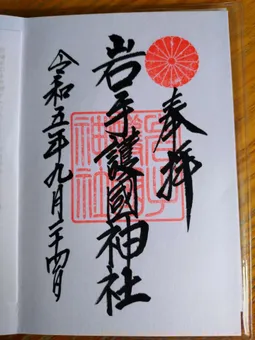 奉拝
岩手護國神社
令和五年九月二十四日
岩手護國神社